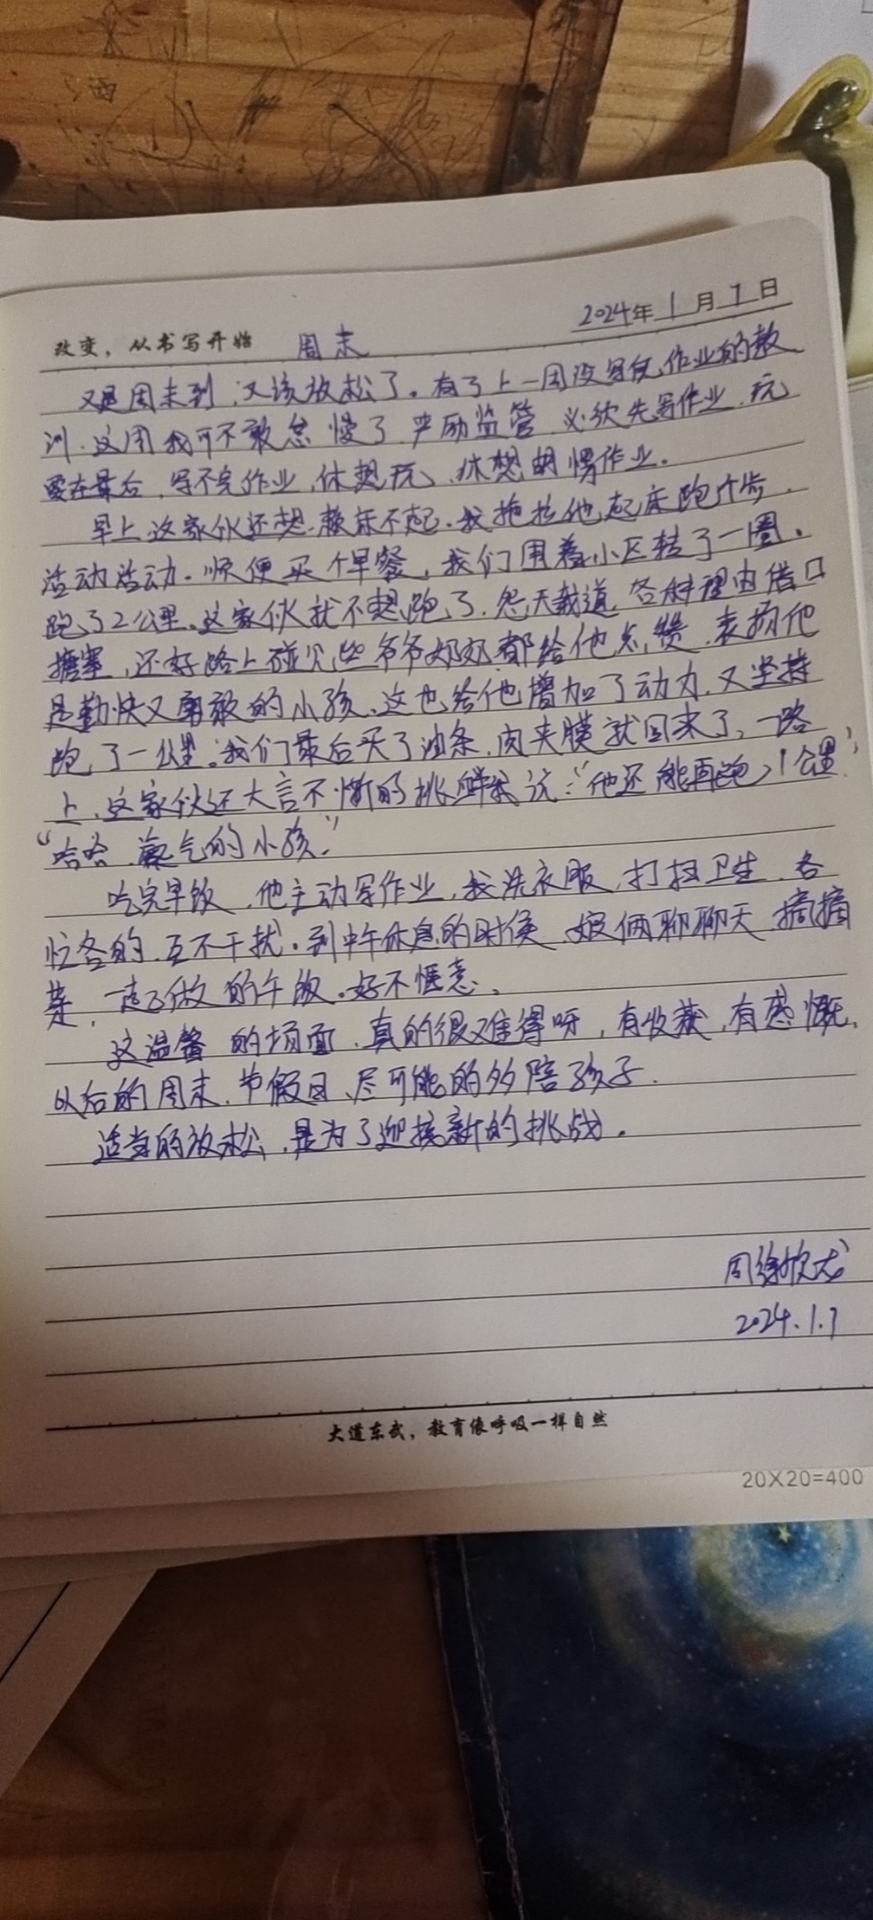 2024年1月7日
改变，从书写开始 周末
又是周末到，又该放松了。有了上一周没写完作业的教
训，这周我可不敢怠慢了，严励监管，必须先写作业，玩
耍在最后，写不完作业，休想玩，休想糊愣作业。
早上这家伙还想赖床不起。我拖拉他起床跑个步，
活动活动。顺便买个早餐，我们围着小区转了一圈，
跑了2公里。这家伙就不想跑了，怨天载道，各种理由借口
搪塞，还好路上碰见些爷爷奶奶都给他点赞，表扬他
是勤快又勇敢的小孩，这也给他增加了动力，又坚持
跑了一公里。我们最后买了油条，肉夹膜就回来了，一路
上，这家伙还大言不惭的挑衅我说："他还能再跑1公里"
"哈哈，豪气的小孩。"
吃完早饭，他主动写作业，我洗衣服，打扫卫生，各
忙各的，互不干扰。到中午休息的时候，娘俩聊聊天，摘摘
菜，一起做的午饭。好不惬意。
这温馨的场面，真的很难得呀，有收获，有感慨，
以后的周末，节假日，尽可能的多陪孩子。
适当的放松，是为了迎接新的挑战。
周徐
2024.1.7
大道东武，教育像呼吸一样自然
20X20=400